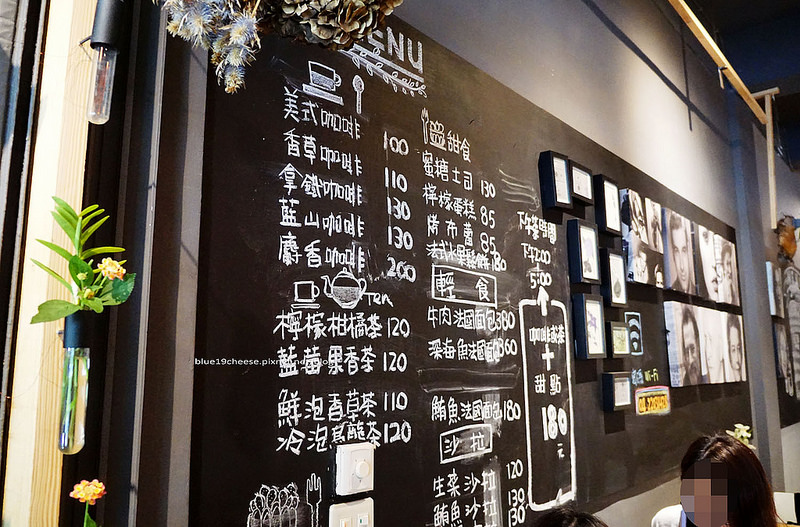 MENU
美式咖啡 100
香草咖啡 110
拿鐵咖啡 130
藍山咖啡 130
麝香咖啡 200
Tea
檸檬柑橘茶 120
藍莓果香茶 120
鮮泡青草茶 110
冷泡烏龍茶 120
甜食
蜜糖土司 130
檸檬蛋糕 85
烤布蕾 85
法式水果鬆餅 180
輕食
牛肉法國面包 380
深海魚法國面包 360
鮪魚法國面包 180
沙拉
生菜沙拉 120
鮪魚沙拉 130
130
下午茶時間
下午2:00
5:00
咖啡或茶
+
甜點
180
元
Wi-Fi
blue19cheese.pix